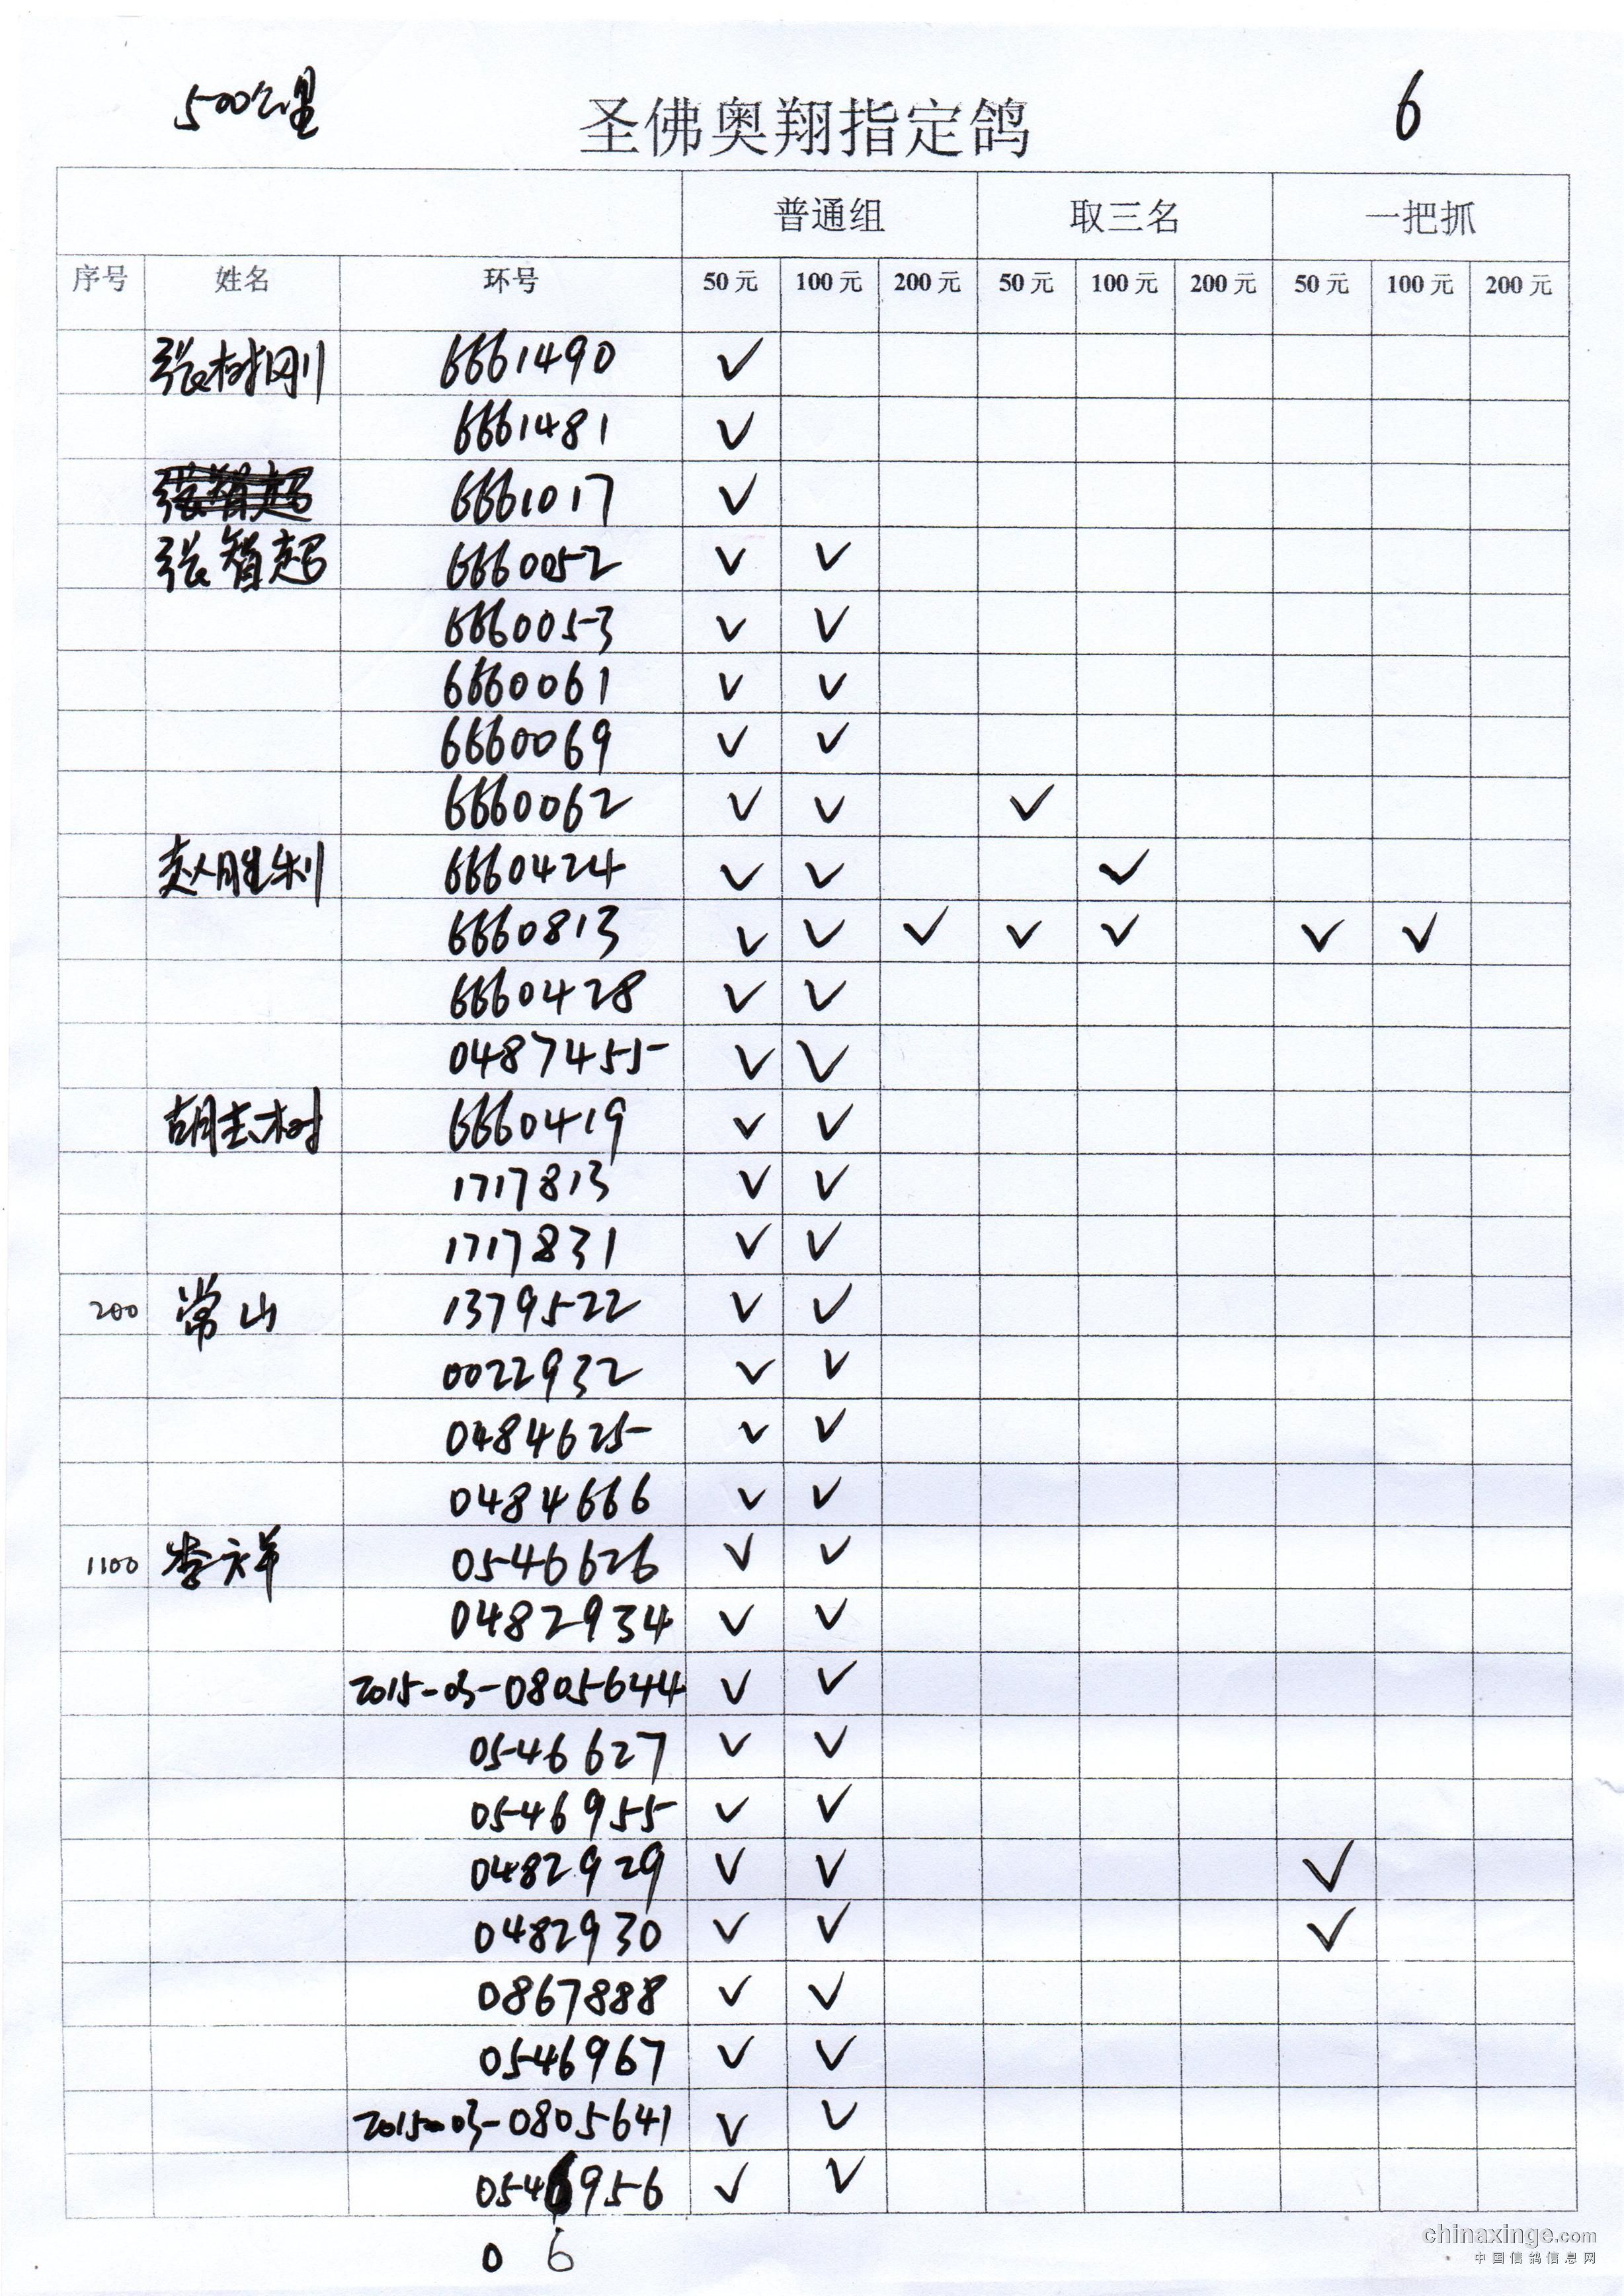 500公里 圣佛奥翔指定鸽 6
普通组 取三名 一把抓
序号 姓名 环号 50元 100元 200元 50元 100元 200元 50元 100元 200元
张树刚 6661490 ✓
6661481 ✓
6661017 ✓
张智超 6660052 ✓ ✓
6660053 ✓ ✓
6660061 ✓ ✓
6660069 ✓ ✓
6660062 ✓ ✓ ✓
赵胜利 6660424 ✓ ✓ ✓
6660813 ✓ ✓ ✓ ✓ ✓ ✓ ✓
6660428 ✓ ✓
0487455 ✓ ✓
胡志树 6660419 ✓ ✓
1717813 ✓ ✓
1717831 ✓ ✓
200 常山 1379522 ✓ ✓
0022932 ✓ ✓
0484625 ✓ ✓
0484666 ✓ ✓
1100 李六羊 0546626 ✓ ✓
0482934 ✓ ✓
2015-03-0805644 ✓ ✓
0546627 ✓ ✓
0546955 ✓ ✓
0482929 ✓ ✓ ✓
0482930 ✓ ✓ ✓
0867888 ✓ ✓
0546967 ✓ ✓
2015-03-0805641 ✓ ✓
0546956 ✓ ✓
0 6
chinaxinge.com
中国信鸽信息网